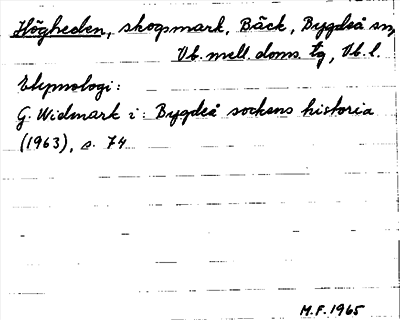 Högheden, skogsmark, Bäck, Bygdeå sn,
Vb. mell. doms. tg, Vb. l.
Etymologi:
G. Widmark i: Bygdeå sockens historia
(1963), s. 74
M.F. 1965